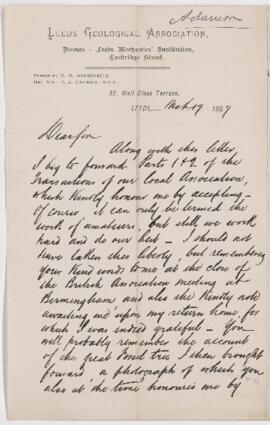 Adamson
LEEDS GEOLOGICAL ASSOCIATION,
Rooms - Leeds Mechanics' Institution,
Cookridge Street.
52, Well Close Terrace,
LEEDS, Mch 19 1887
Dear Sir
Along with this letter,
I beg to forward Parts 1 & 2 of the
Transactions of our local Association,
which kindly honour me by accepting -
Of course, it can only be termed the
work of amateurs, but still we work
hard and do our best - I should not
have taken this liberty, but remembering
your kind words to me at the close of
the British Association meeting at
Bermingham and also the kindly note
awaiting me upon my return home, for
which I was indeed grateful - You
will probably remember the account
of the great fossil tree I then brought
forward a photograph of which you
also at the time honoured me by